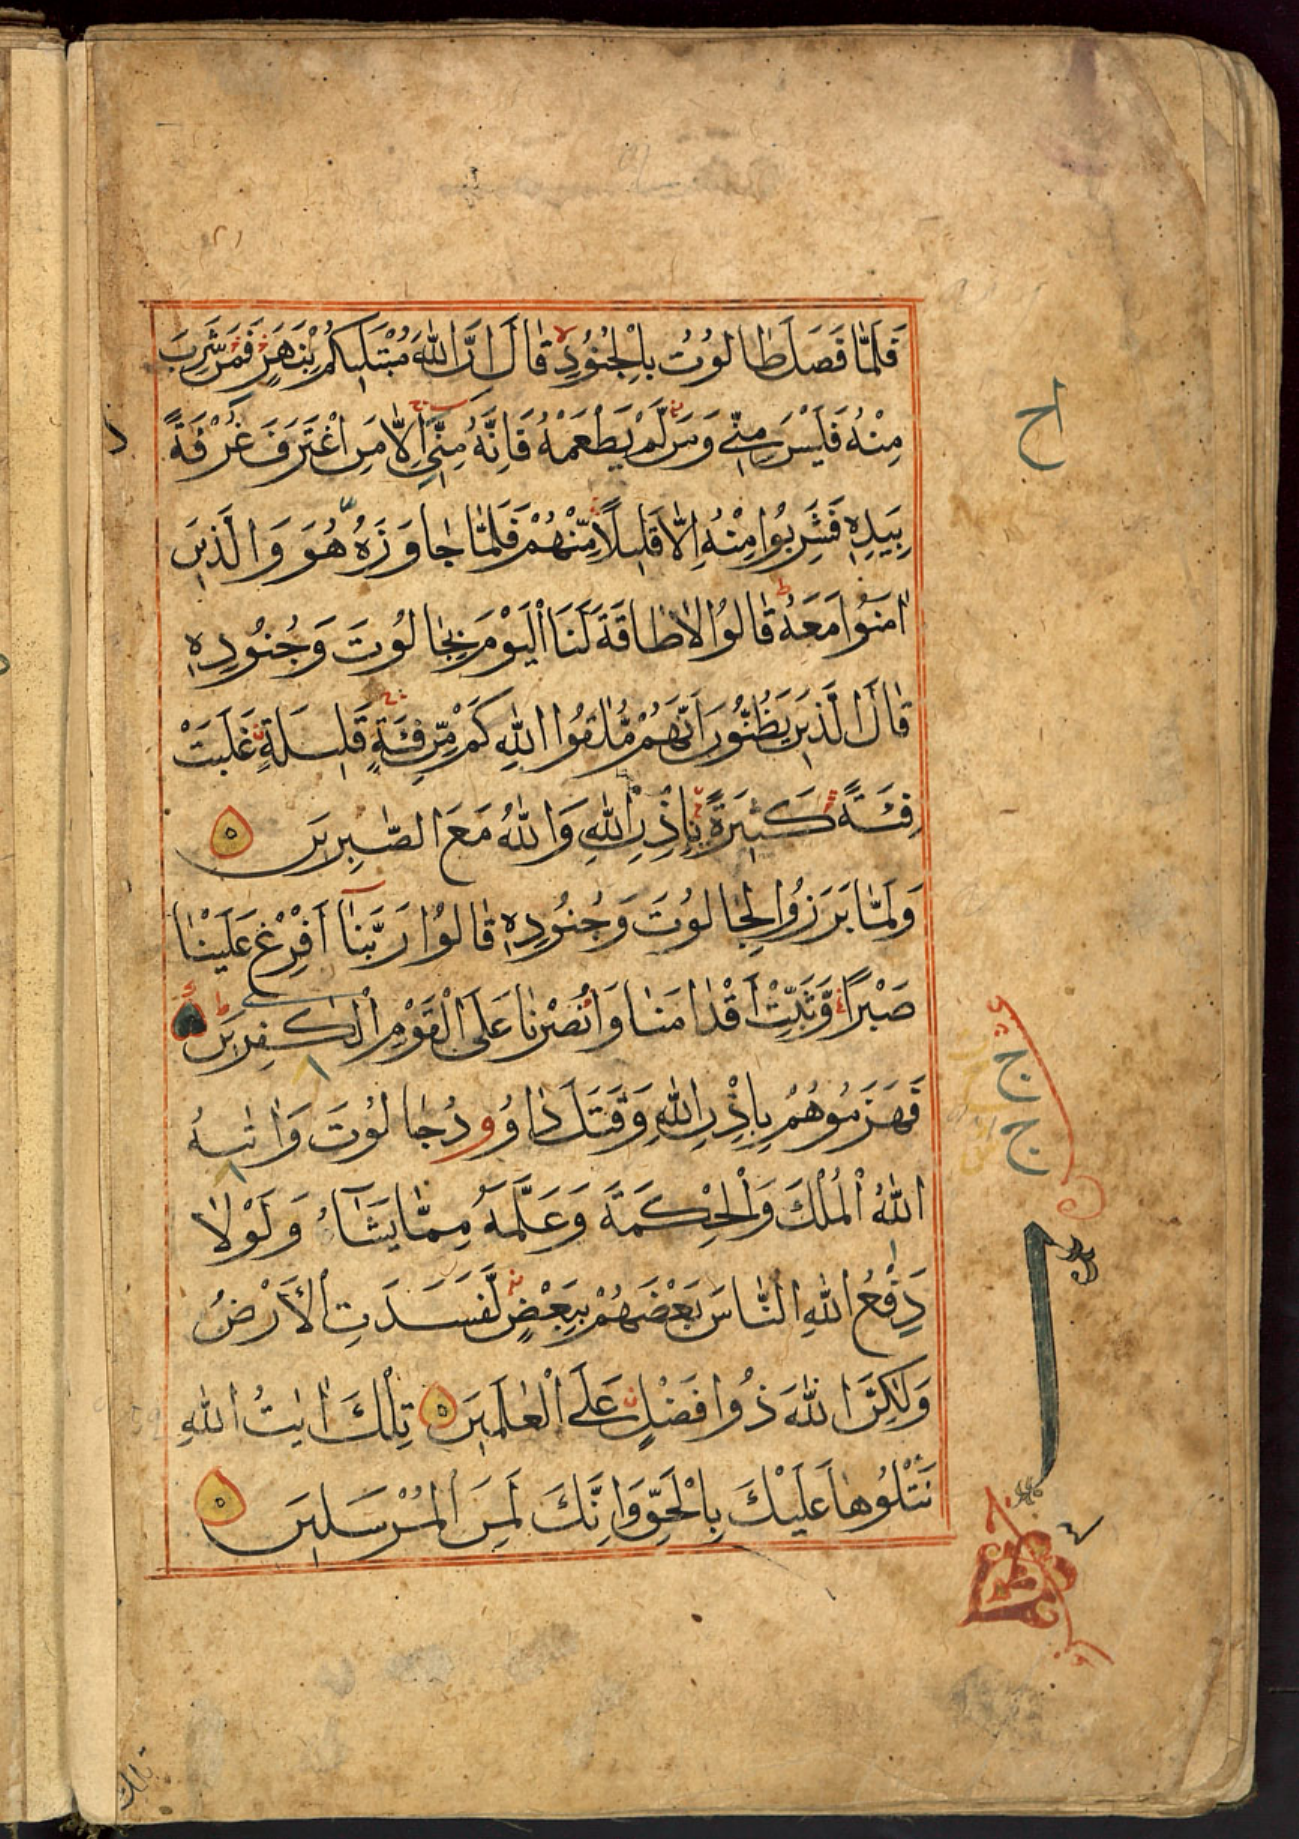 فَلَمَّا فَصَلَ طَالُوتُ بِالْجُنُودِ قَالَ اِنَّ اللّٰهَ مُبْتَلِيكُمْ بِنَهَرٍ فَمَنْ شَرِبَ
مِنْهُ فَلَيْسَ مِنِّي وَمَن لَّمْ يَطْعَمْهُ فَاِنَّهُ مِنِّي اِلَّا مَنِ اغْتَرَفَ غُرْفَةً
بِيَدِهِ فَشَرِبُوا مِنْهُ اِلَّا قَلِيلًا مِّنْهُمْ فَلَمَّا جَاوَزَهُ هُوَ وَالَّذِينَ
اٰمَنُوا مَعَهُ قَالُوا لَا طَاقَةَ لَنَا الْيَوْمَ بِجَالُوتَ وَجُنُودِهِ
قَالَ الَّذِينَ يَظُنُّونَ اَنَّهُمْ مُّلٰقُوا اللّٰهِ كَمْ مِّن فِئَةٍ قَلِيلَةٍ غَلَبَتْ
فِئَةً كَثِيرَةً بِاِذْنِ اللّٰهِ وَاللّٰهُ مَعَ الصّٰبِرِينَ ه
وَلَمَّا بَرَزُوا لِجَالُوتَ وَجُنُودِهِ قَالُوا رَبَّنَا اَفْرِغْ عَلَيْنَا
صَبْرًا وَّثَبِّتْ اَقْدَامَنَا وَانْصُرْنَا عَلَى الْقَوْمِ الْكٰفِرِينَ
فَهَزَمُوهُمْ بِاِذْنِ اللّٰهِ وَقَتَلَ دَاوُودُ جَالُوتَ وَاٰتٰىهُ
اللّٰهُ الْمُلْكَ وَالْحِكْمَةَ وَعَلَّمَهُ مِمَّا يَشَآءُ وَلَوْلَا
دَفْعُ اللّٰهِ النَّاسَ بَعْضَهُمْ بِبَعْضٍ لَّفَسَدَتِ الْأَرْضُ
وَلٰكِنَّ اللّٰهَ ذُوا فَضْلٍ عَلَى الْعٰلَمِينَ ه تِلْكَ اٰيٰتُ اللّٰهِ
نَتْلُوهَا عَلَيْكَ بِالْحَقِّ وَاِنَّكَ لَمِنَ الْمُرْسَلِينَ ه
تلك